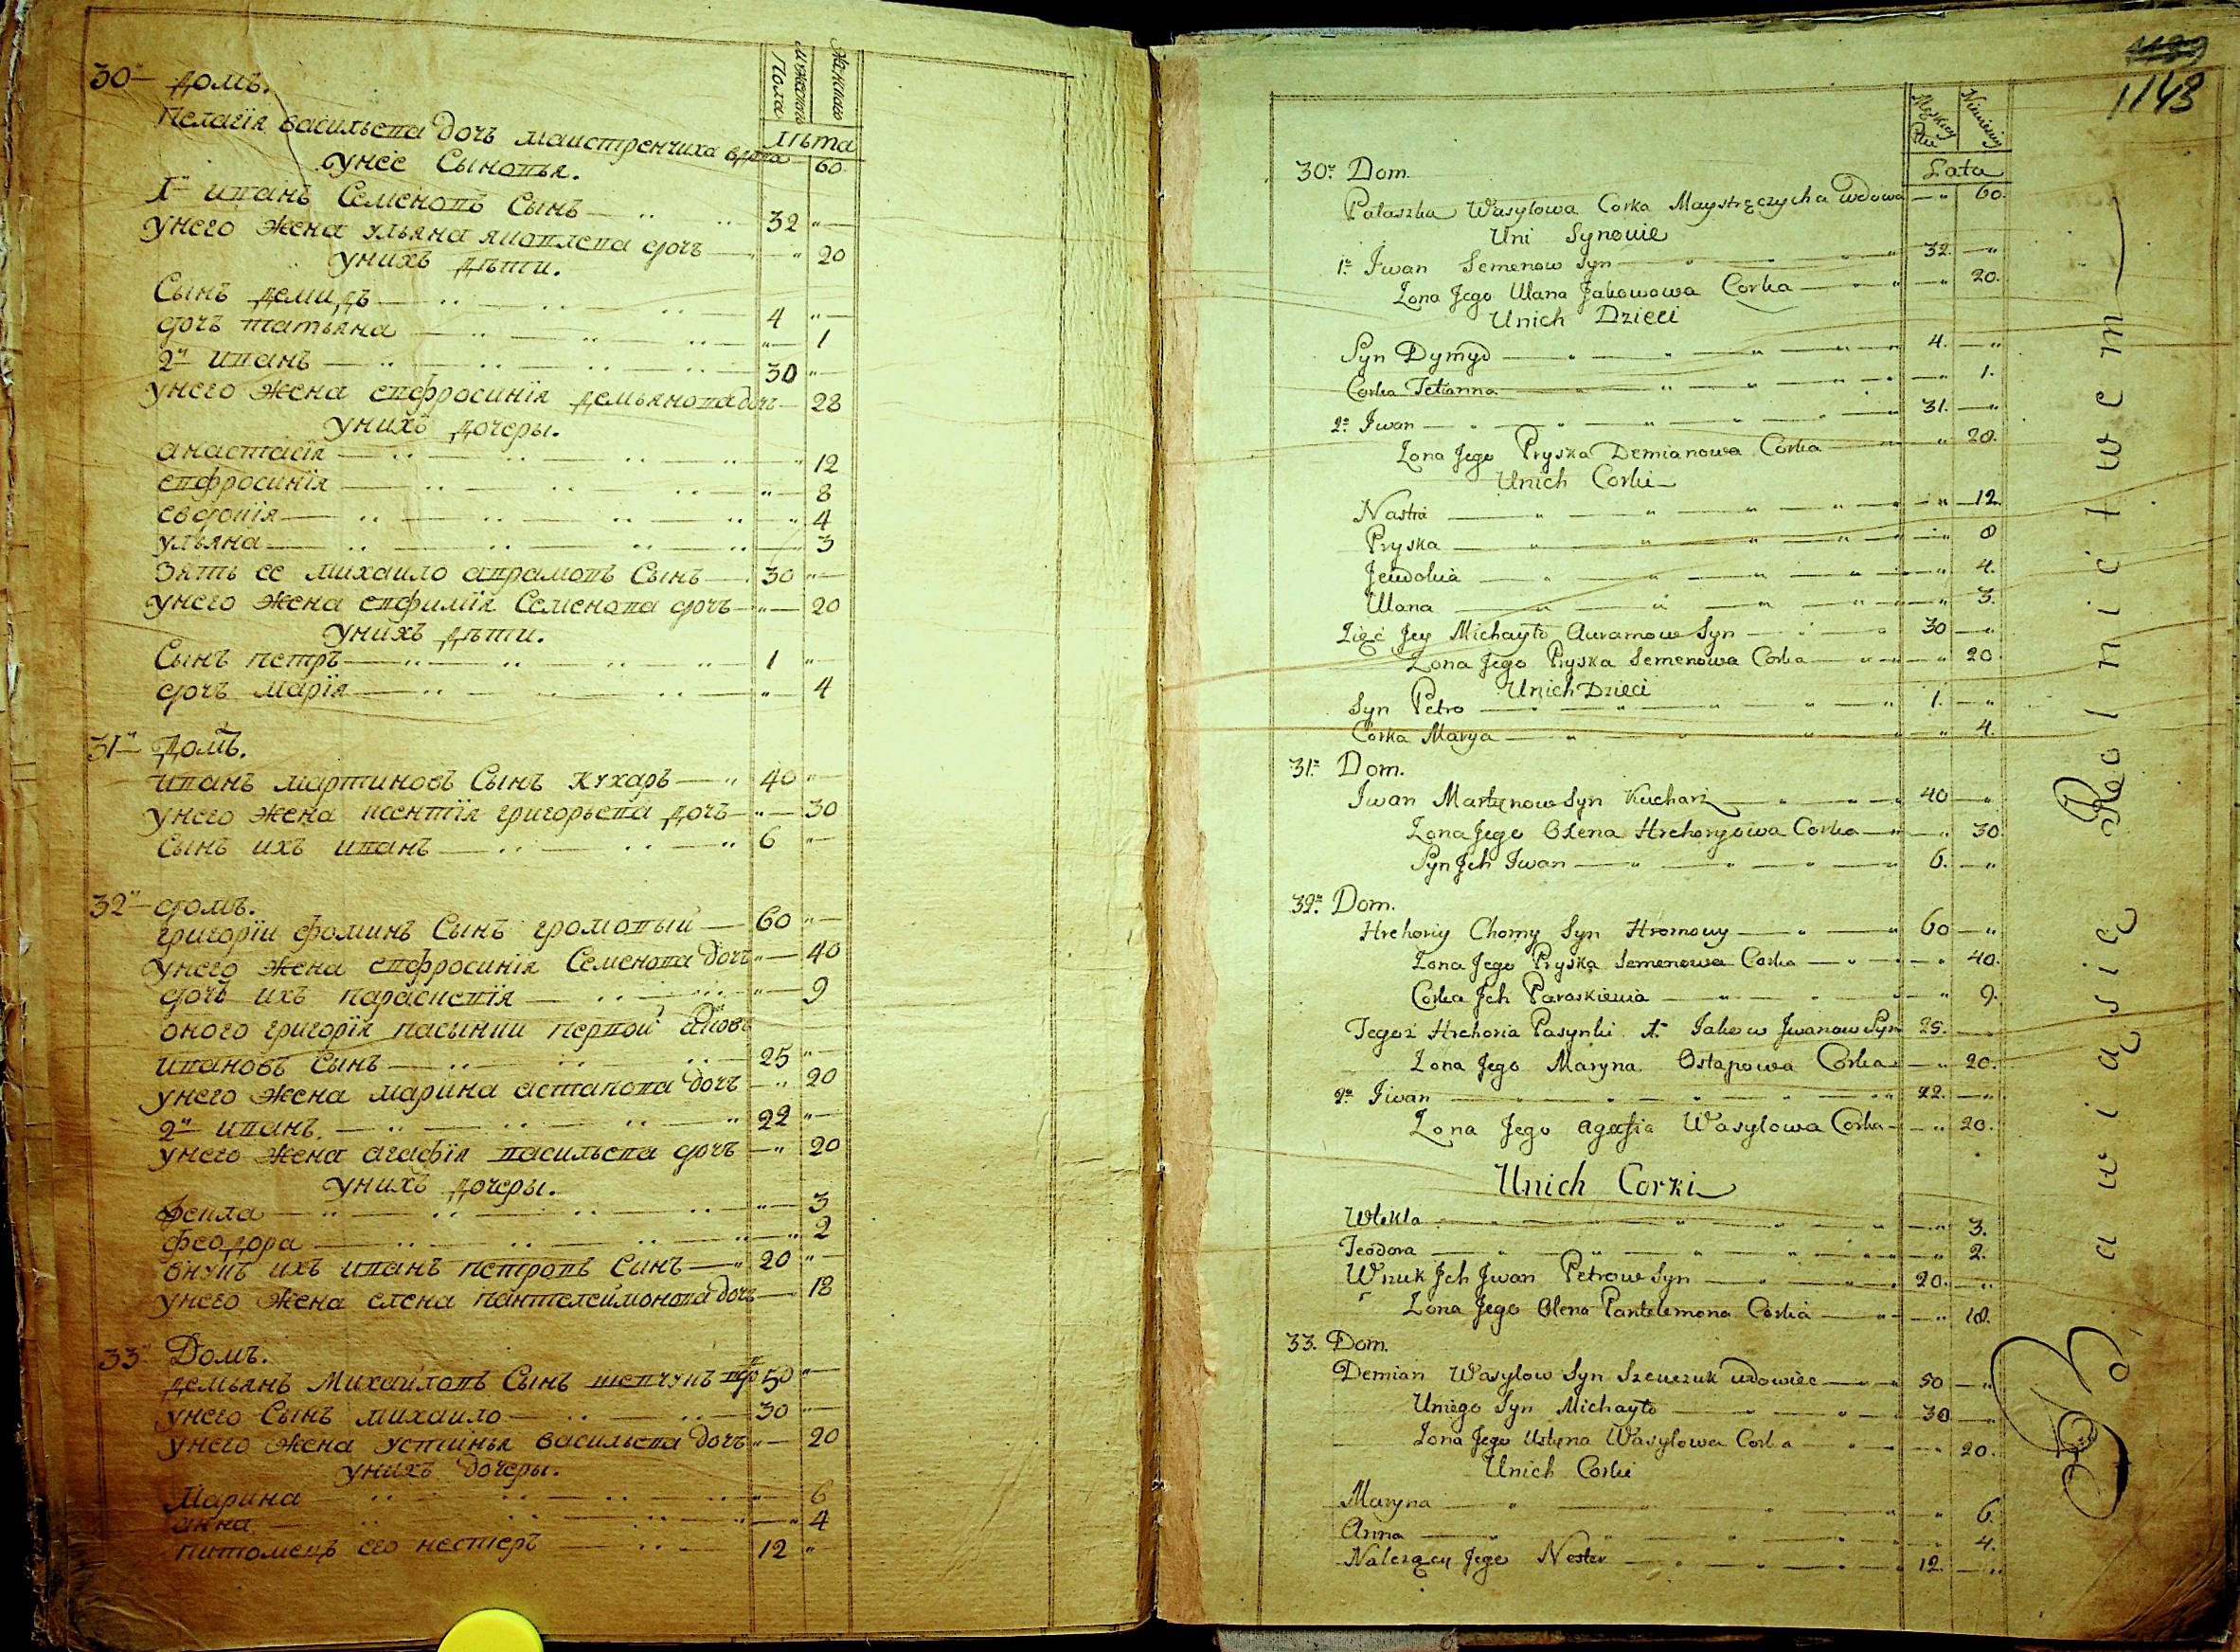 Мужеска Пола
Женска
Лѣта
30й домъ.
Пелагія васильева дочъ маистренчиха вдова 60
унее Сыновья.
1й иванъ Семеновъ Сынъ 32
унего жена ульяна яковлева дочъ 20
унихъ дѣти.
Сынъ демидъ 4
дочъ татьяна 1
2й иванъ 30
унего жена евфросинія демьянова дочъ 28
унихъ дочеры.
анастасія 12
евфросинія 8
евдокія 4
ульяна 3
Зять ее михаило аврамовъ Сынъ 30
унего жена евфимія Семенова дочъ 20
унихъ дѣти.
Сынъ петръ 1
дочъ марія 4
31й домъ.
иванъ мартиновъ Сынъ кухаръ 40
унего жена григорьева дочъ 30
Сынъ ихъ иванъ 6
32й домъ.
григоріи фоминъ Сынъ громовый 60
унего жена евфросинія Семенова дочъ 40
дочъ ихъ параскевія 9
оного григорія пасынки первой яковъ
ивановъ Сынъ 25
унего жена марина астапова дочъ 20
2й иванъ 22
унего жена агафія васильева дочъ 20
унихъ дочеры.
фекла 3
феодора 2
внукъ ихъ иванъ петровъ Синъ 20
унего жена елена пантелеимонова дочъ 18
33й Домъ.
демьянъ Михайловъ Сынъ шевчукъ 50
унего Сынъ михаило 30
унего жена устинья васильева дочъ 20
унихъ дочеры.
Марина 6
анна 4
питомецъ его нестеръ 12
1143
Męzkiey Płci
Lata
30o Dom.
Palaszka Wasylowa Corka Maystręczycha Wdowa 60.
Uni Synowie
1o Jwan Semenow Syn 32.
Zona Jego Ulana Jakowowa Corka 20.
Unich Dzieci
Syn Dymyd 4.
Corka Tetianna 1.
2o Jwan 31.
Zona Jego Pryska Demianowa Corka 28.
Unich Corki
Nastia 12
Pryska 8
Jewdokia 4.
Ulana 3.
Zięć Jey Michayło Auramow Syn 30
Zona Jego Pryska Semenowa Corka 20
Unich Dzieci
Syn Petro 1.
Corka Marya 4.
31o Dom.
Jwan Martynow Syn Kucharz 40
Zona Jego Olena Hrehoryowa Corka 30.
Syn Jch Jwan 6.
32o Dom.
Hrehoriy Chomy Syn Hromowy 60
Zona Jego Pryska Semenowa Corka 40.
Corka Jch Paraskiewia 9.
Tegoż Hrehoria Pasynki 1o Jakow Jwanow Syn 25.
Zona Jego Maryna Ostapowa Corka 20.
2o Jwan 22.
Zona Jego agafia Wasylowa Corka 20.
Unich Corki
Wtekla 3.
Teodora 2.
Wnuk Jch Jwan Petrow Syn 20.
Zona Jego Olena Pantelemona Corka 18.
33. Dom.
Demian Wasylow Syn Szewczuk wdowiec 50
Uniego Syn Michayło 30
Zona Jego Ustyna Wasylowa Corka 20.
Unich Corki
Maryna 6.
Anna 4.
Należący Jego Nester 12.
Rolnictwem